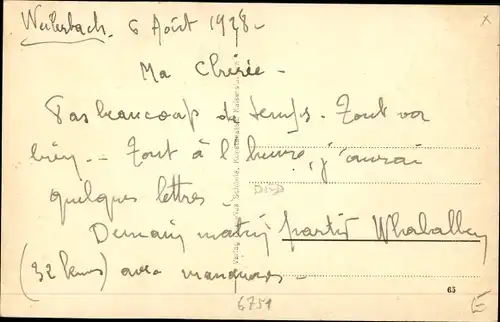 Weilerbach. 6 Août 1928 -
Ma Chérie -
Pas beaucoup de temps. Tout va
bien -- Tout à l'heure, j'aurai
quelques lettres -
Demain matin partir
(32 kms) avec manœuvres -
6751
65